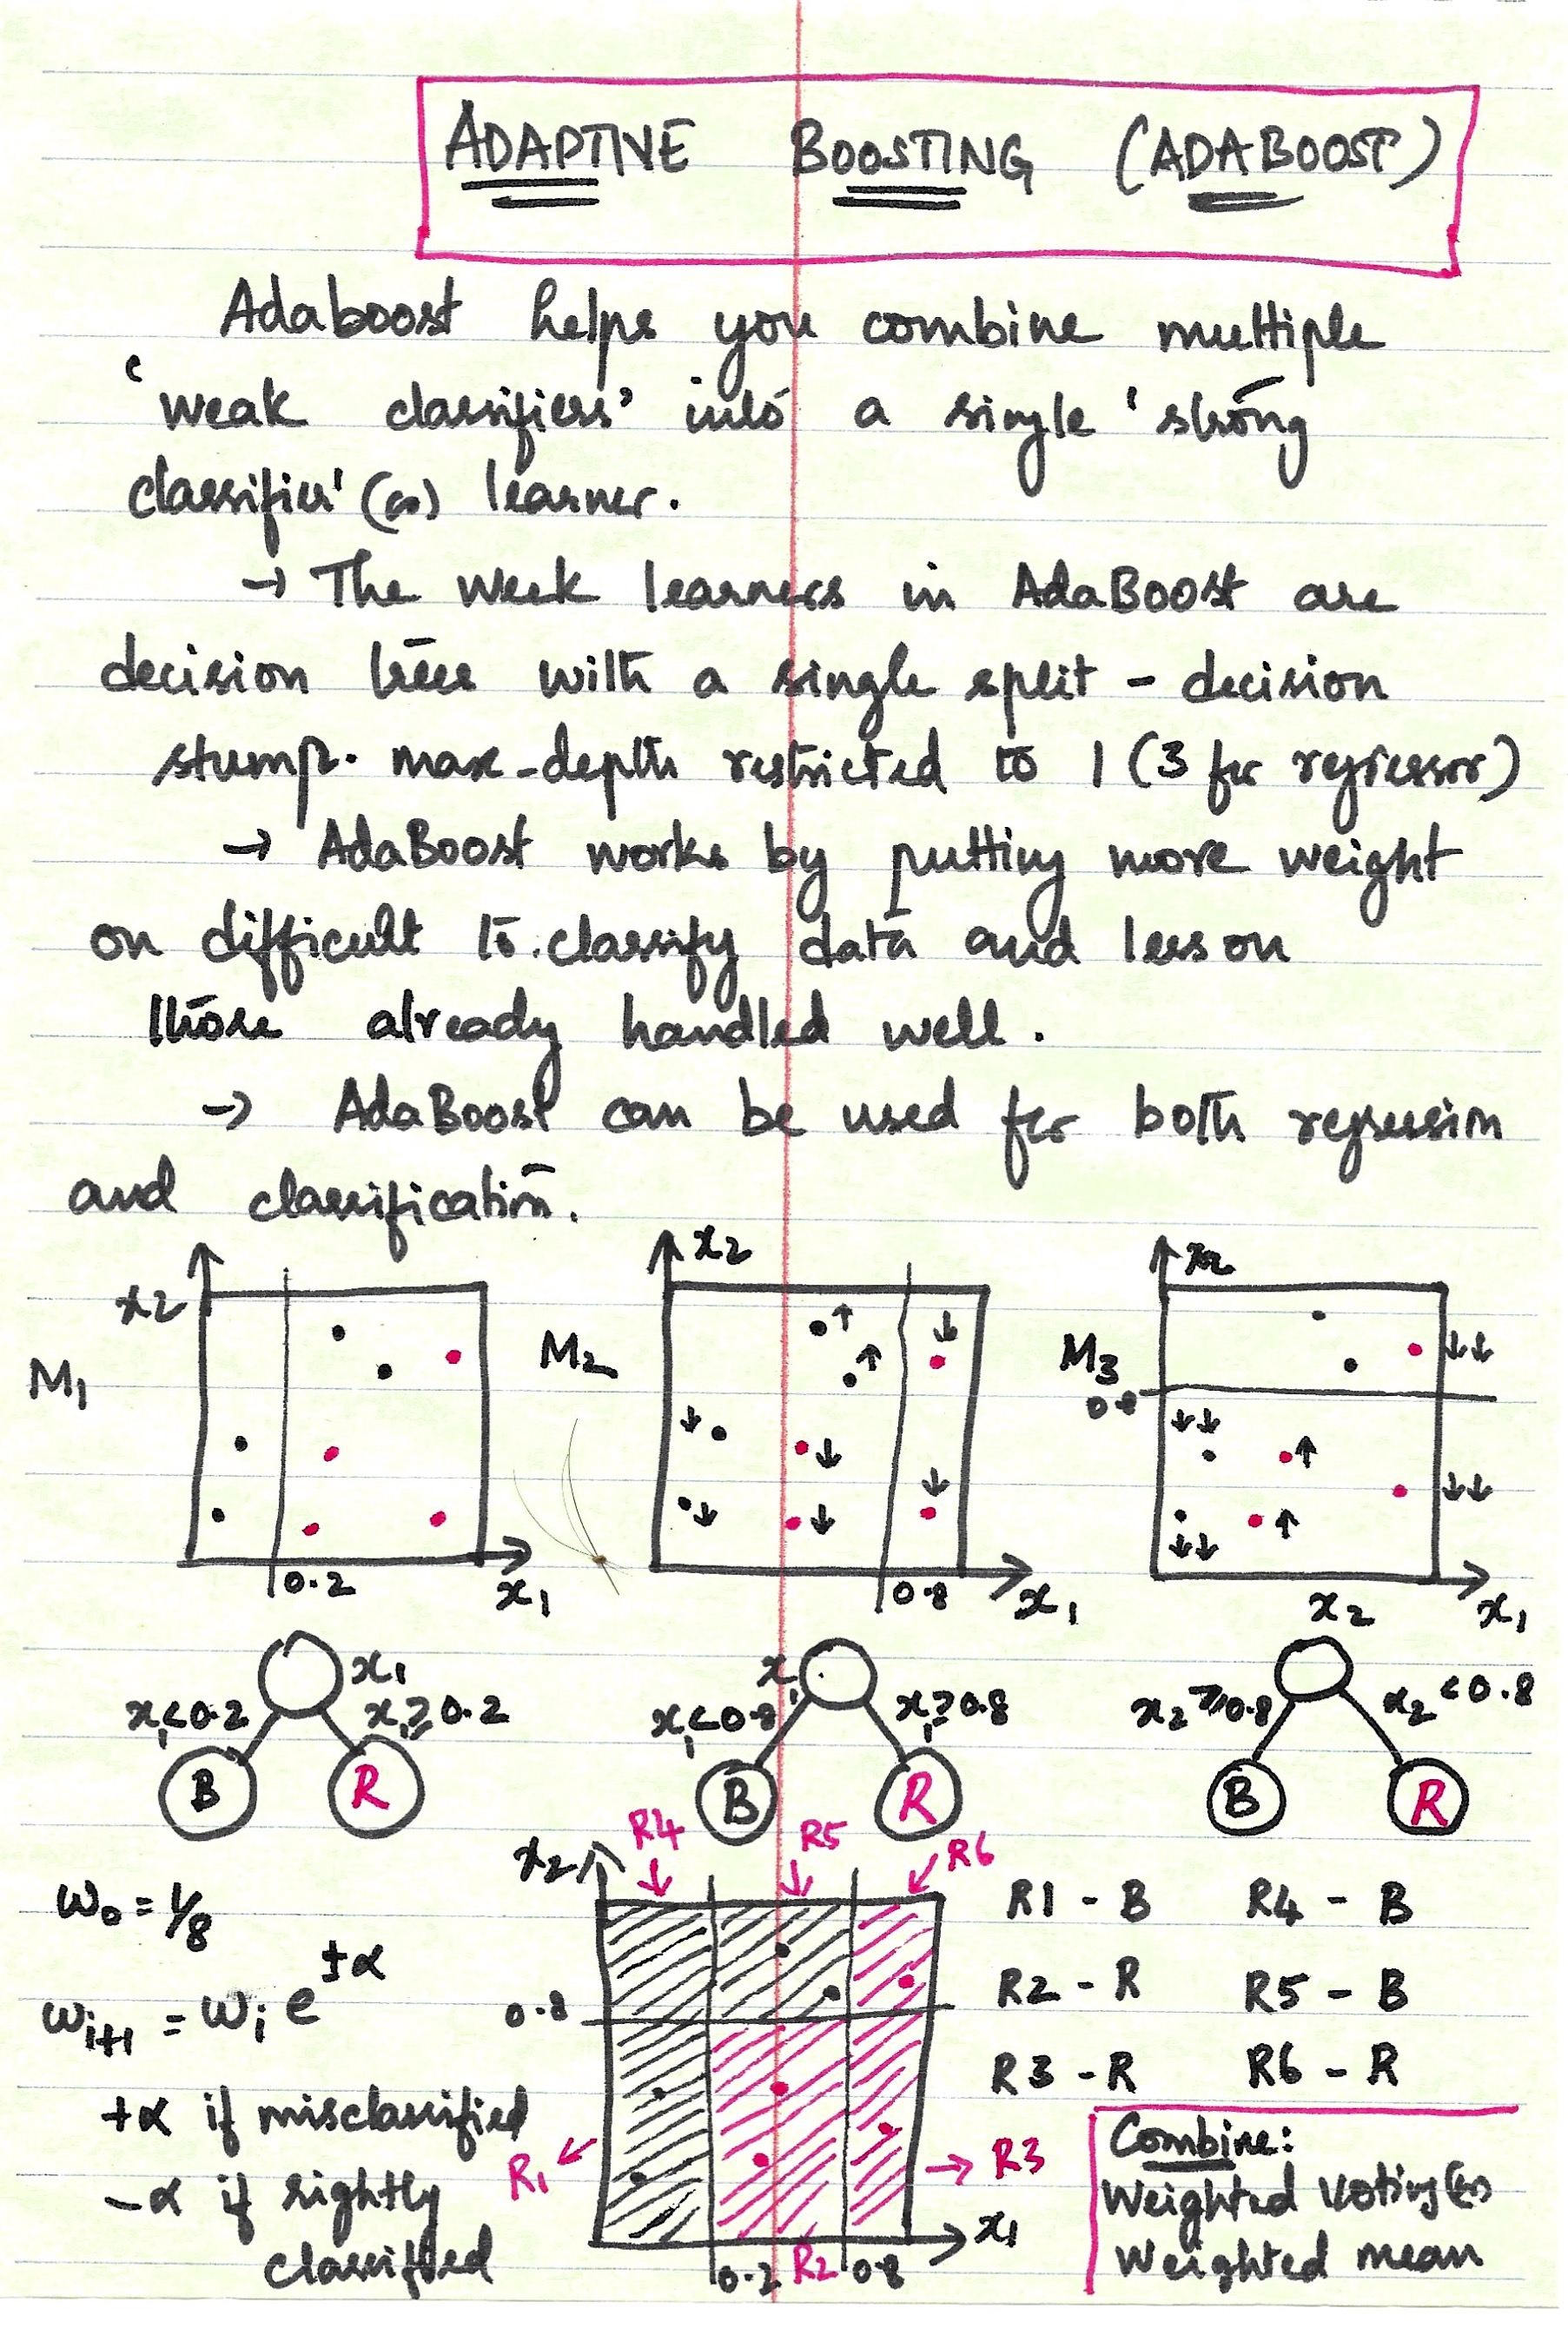 ADAPTIVE BOOSTING (ADABOOST)
Adaboost helps you combine multiple
'weak classifiers' into a single 'strong
classifier' (or) learner.
→ The week learners in AdaBoost are
decision trees with a single split - decision
stump. max-depth restricted to 1 (3 for regressor)
→ AdaBoost works by putting more weight
on difficult to classify data and less on
those already handled well.
→ AdaBoost can be used for both regression
and classification.
x2 x2 x2
M1 M2 M3
0.8
↑ ↑ ↓ ↓ ↓ ↓ ↓ ↓
↓↓ ↓↓ ↓↓ ↓↓ ↑ ↑
0.2 x1 0.8 x1 x2 x1
x1 x1
x1<0.2 x1≥0.2 x1<0.8 x1≥0.8 x2≥0.8 x2<0.8
B R B R B R
R4 R5 R6
x2
w0 = 1/8 R1 - B R4 - B
wi+1 = wi e±α 0.8 R2 - R R5 - B
R3 - R R6 - R
+α if misclassified
-α if rightly
classified
R1 R3
x1
0.2 R2 0.8
Combine:
Weighted Voting (or)
Weighted mean